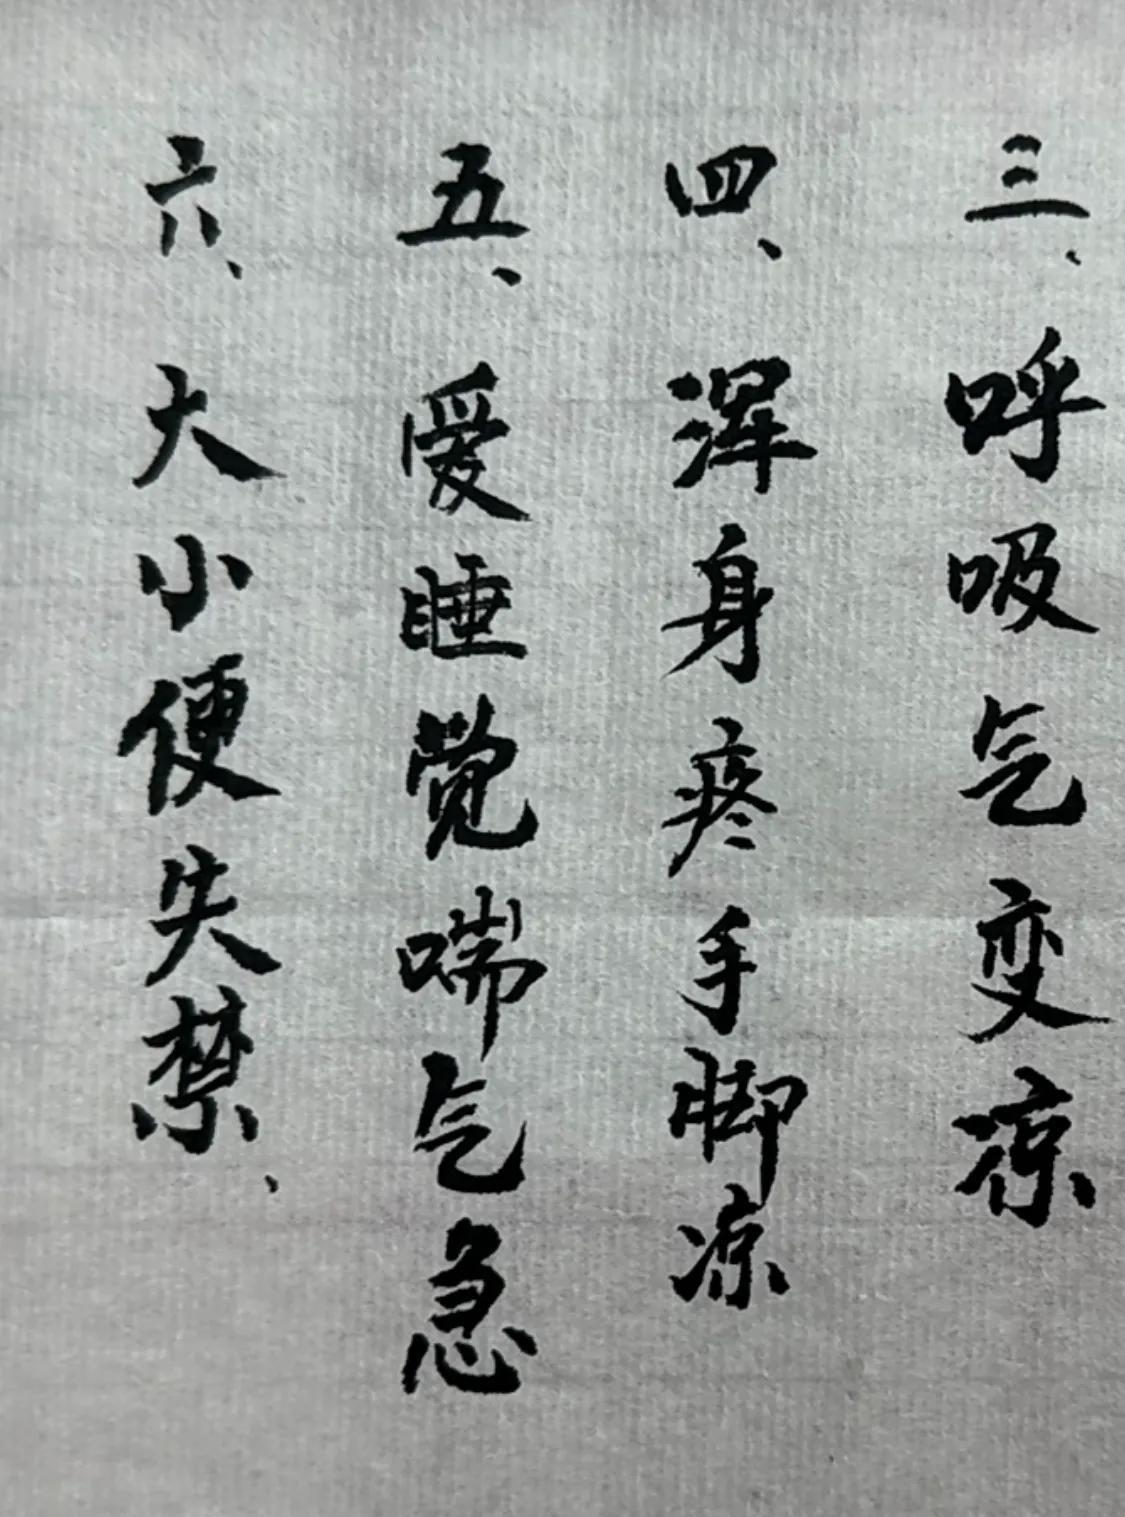 三、呼吸气变凉
四、浑身疼手脚凉
五、爱睡觉喘气急
六、大小便失禁、